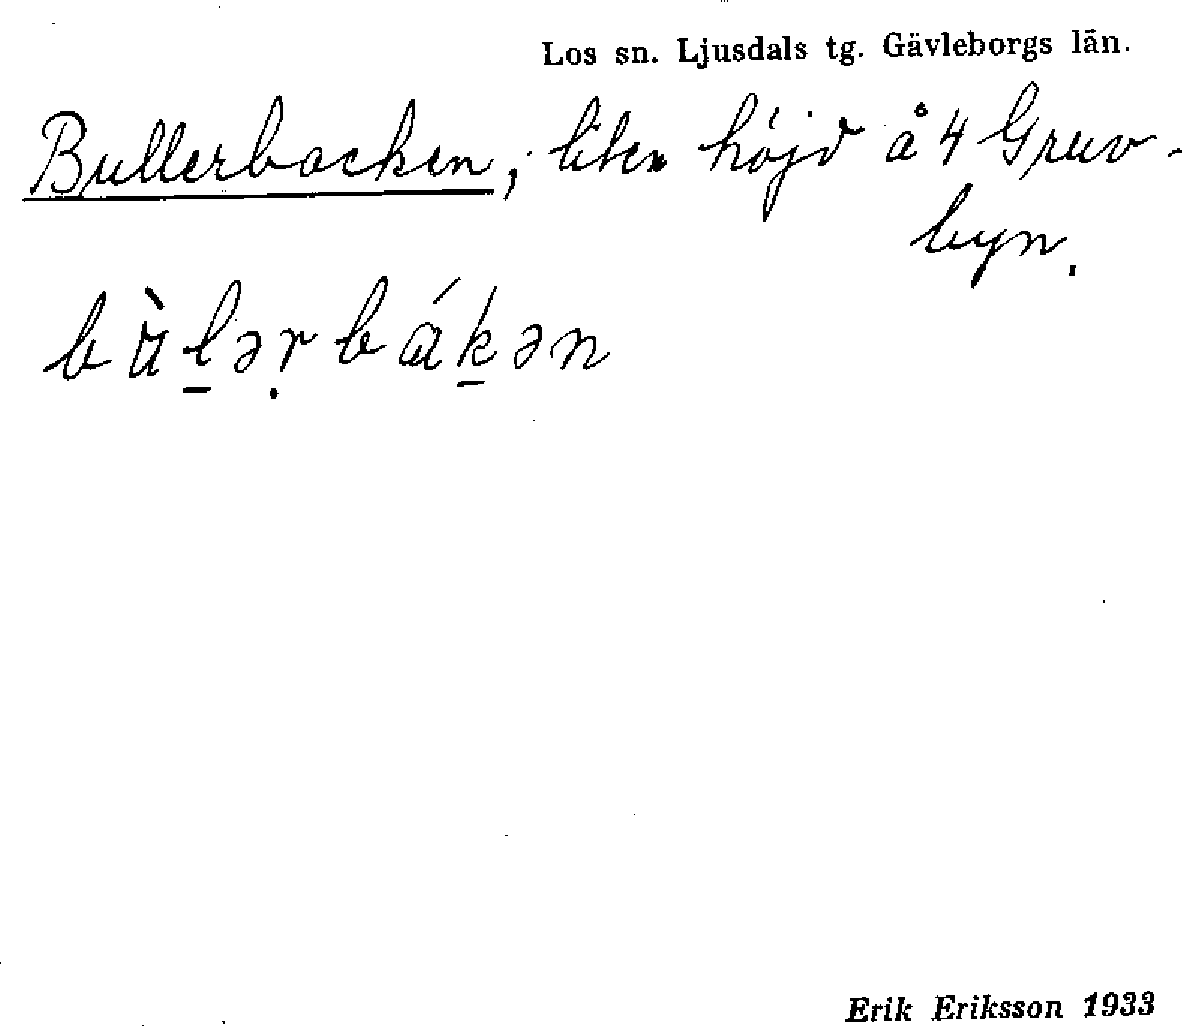 Los sn. Ljusdals tg. Gävleborgs län.
Bullerbacken, liten höjd å 4 Gruv-
byn.
bù̱lər̩báḵən
Erik Eriksson 1933